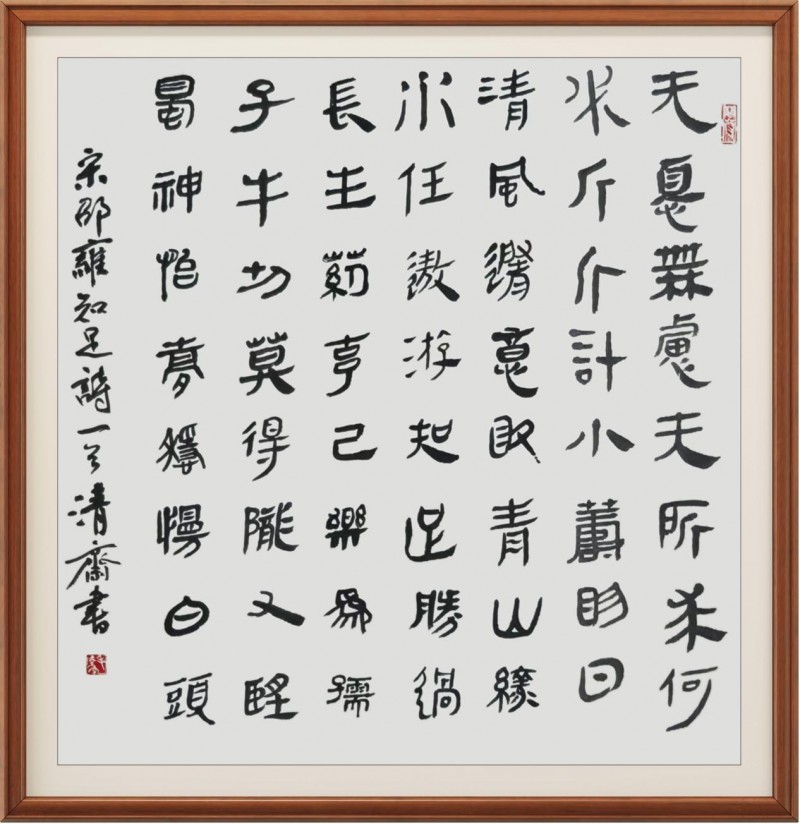 无憂無慮无所求何
必斤斤計小籌明月
清風隨意取青山綠
水任遨游知足勝過
長生藥克己樂為孺
子牛切莫得隴又望
蜀神怡夢穩慢白頭
宋邵雍知足詩一首清齋書